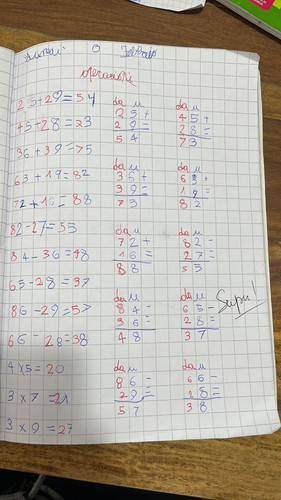 operazioni
25+29=54
45+28=23
36+39=75
63+19=82
72+16=88
82-27=55
84-36=48
65-28=37
86-29=57
66-28=38
4×5=20
3×7=21
3×9=27
da u
25+
29=
54
da u
45+
28=
73
da u
36+
39=
73
da u
63+
19=
82
da u
72+
16=
88
da u
82-
27=
55
da u
84-
36=
48
da u
65-
28=
37
Super!
da u
86-
29=
57
da u
66-
28=
38